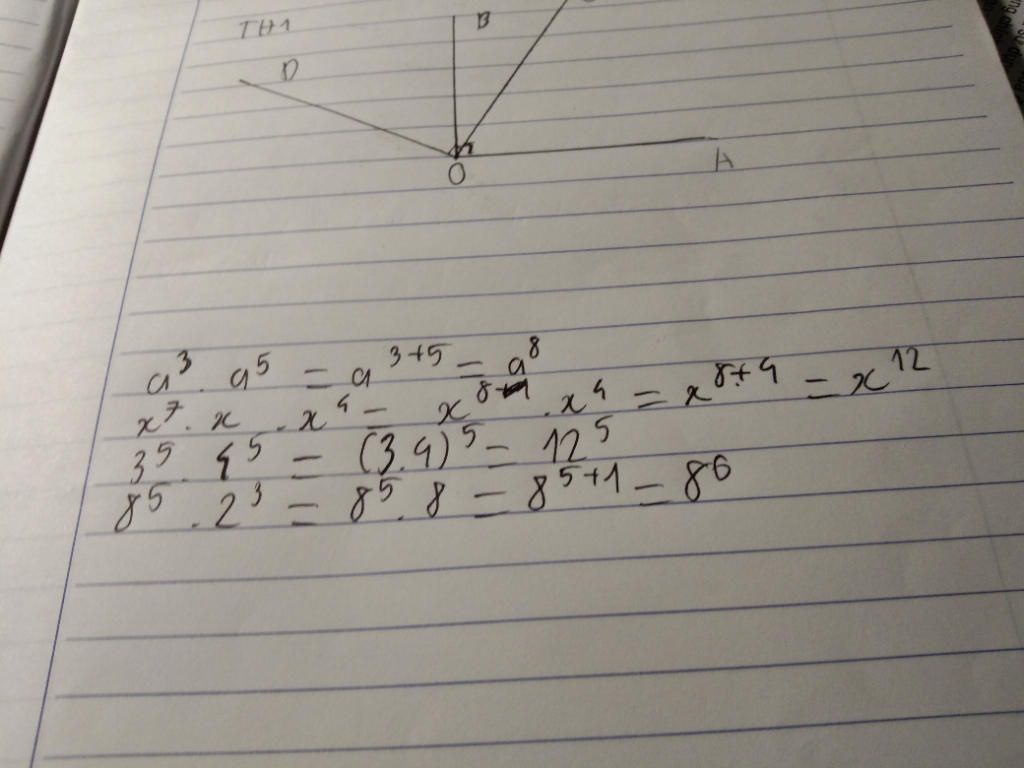 TH1
B
D
O
A
a³ . a⁵ = a³⁺⁵ = a⁸
x⁷ . x . x⁴ = x⁸ . x⁴ = x⁸⁺⁴ = x¹²
3⁵ . 4⁵ = (3.4)⁵ = 12⁵
8⁵ . 2³ = 8⁵ . 8 = 8⁵⁺¹ = 8⁶